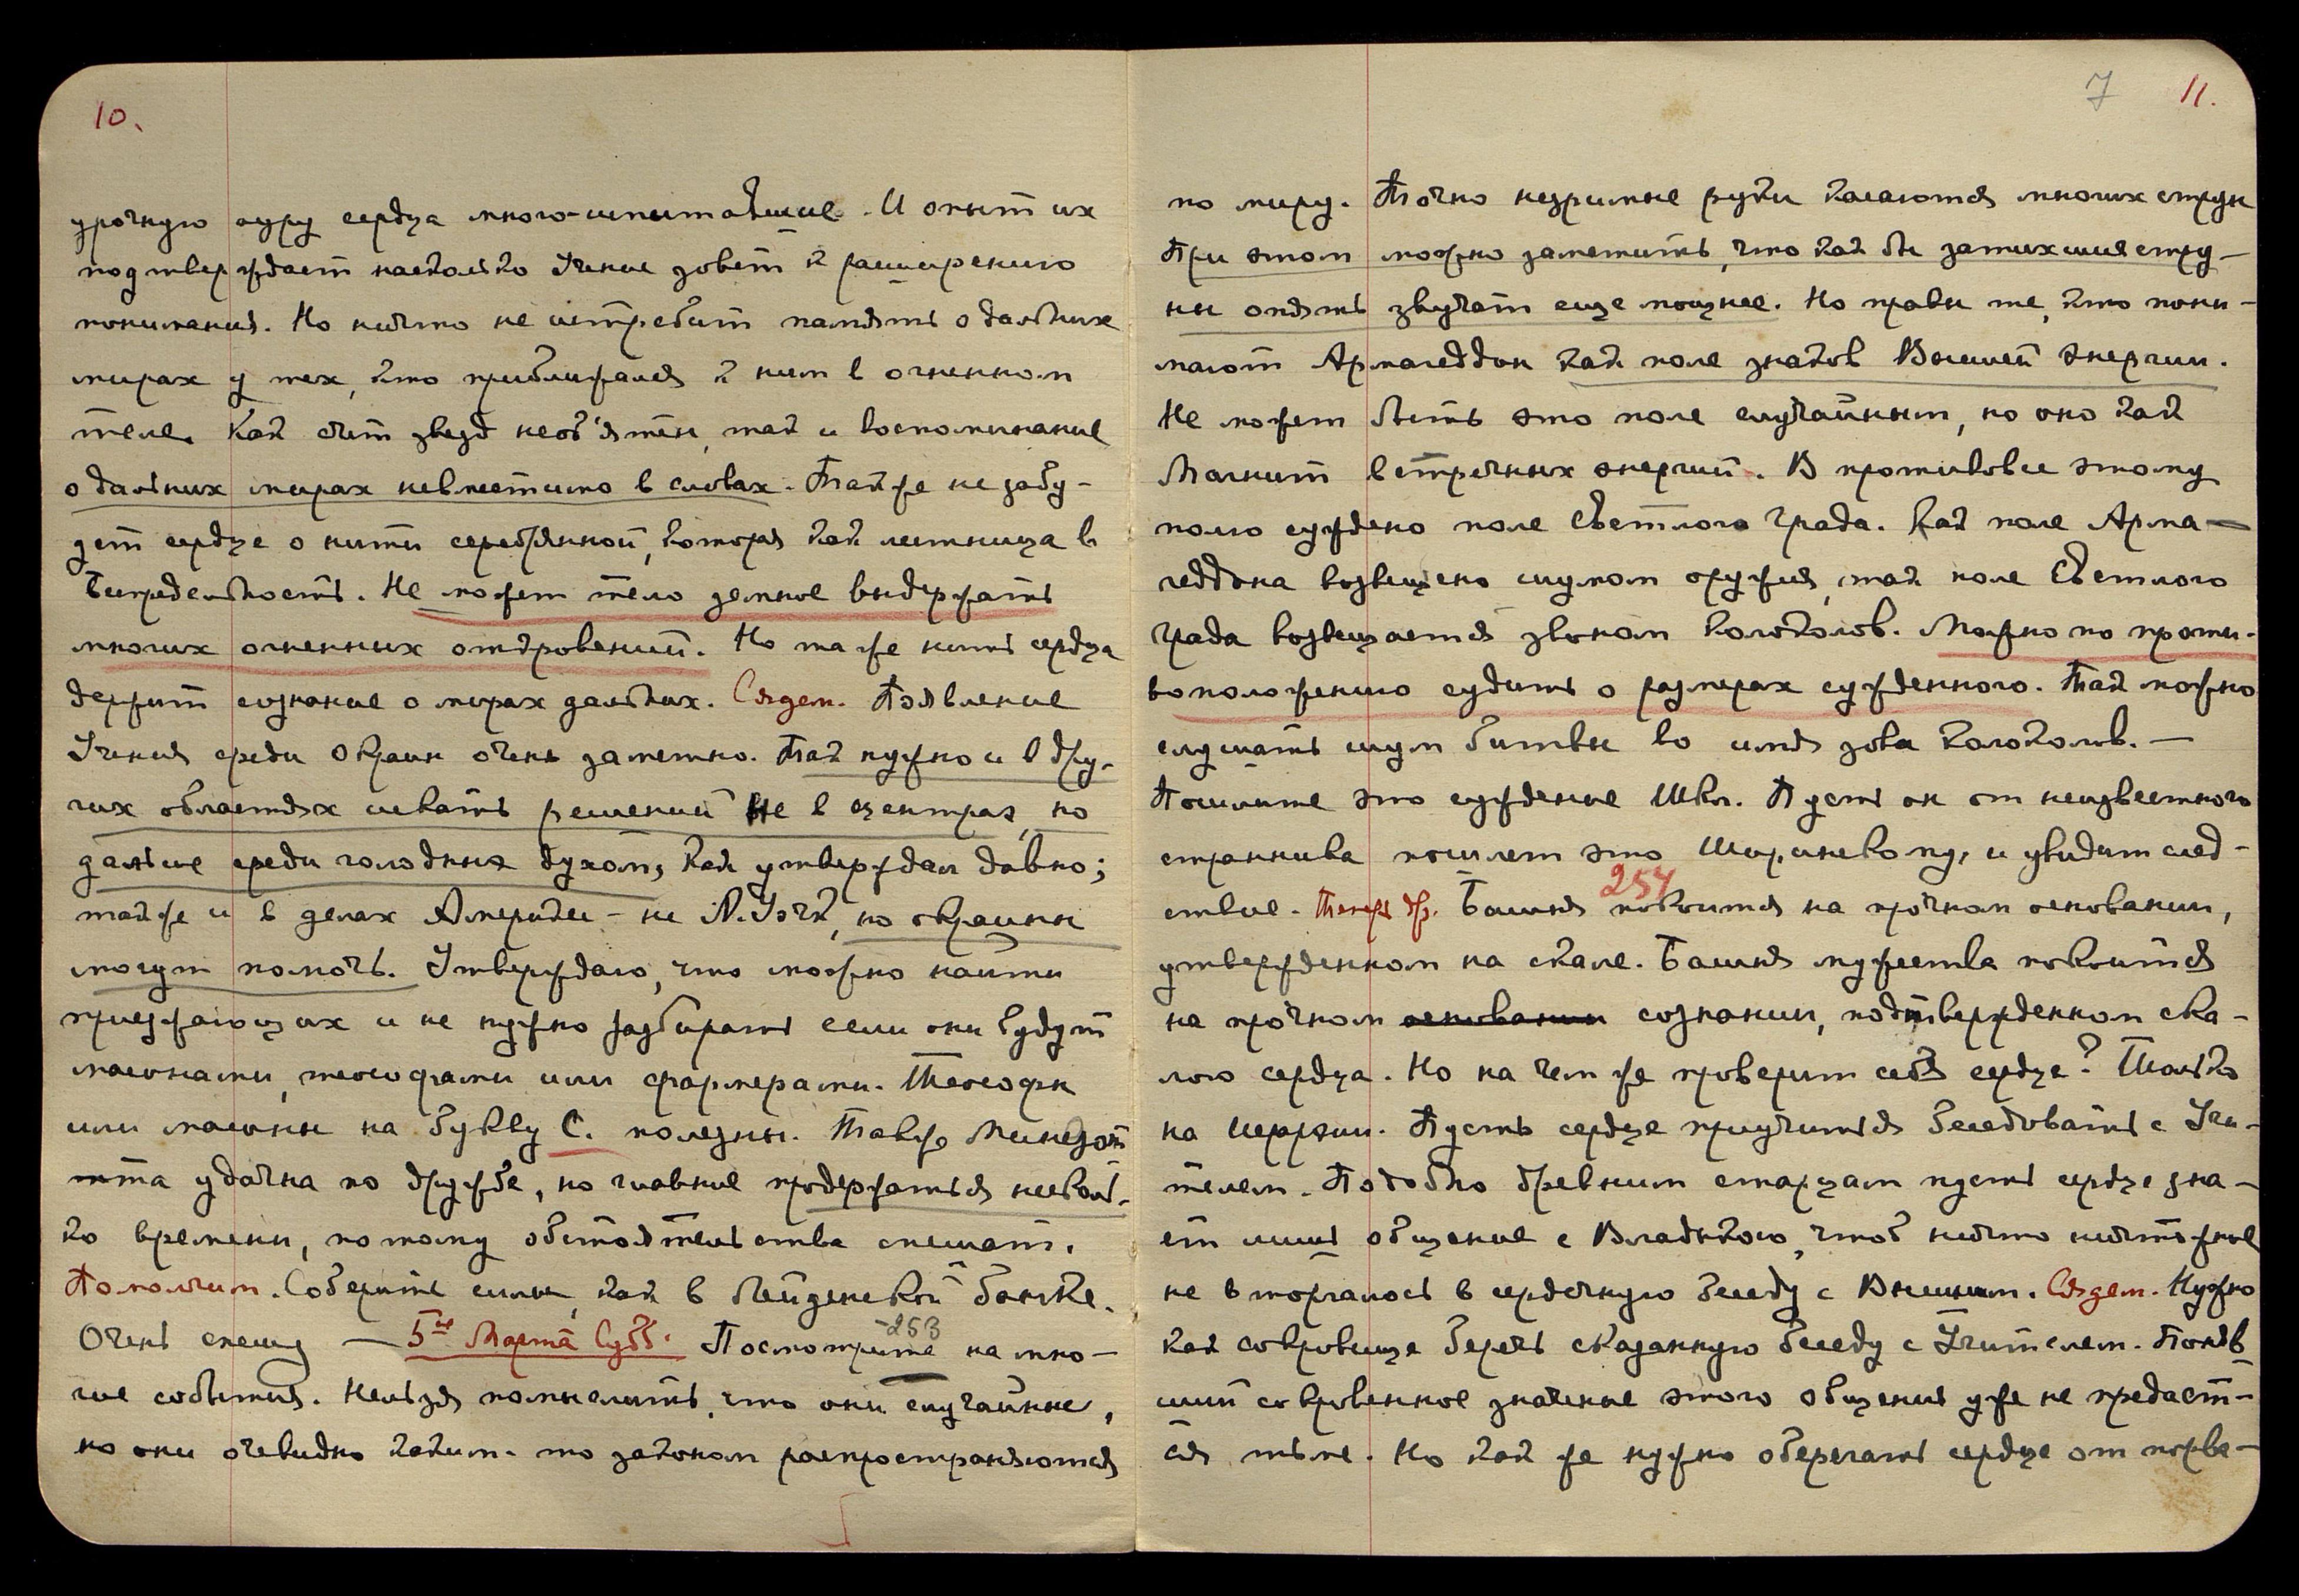 10.
урочную ауру сердца много-испытавшие. И опыт их
подтверждает насколько Учение зовет к расширению
понимания. Но ничто не истребит память о дальних
мирах у тех, кто приближался к ним в огненном
теле. Как счет звезд необ'ятен, так и воспоминание
о дальних мирах невместимо в словах. Также не забу-
дет сердце о нити серебрянной, которая как лестница в
Беспредельность. Не может тело земное выдержать
многих огненных откровений. Но та же нить сердца
держит сознание о мирах дальних. Сядем. Появление
Учения среди окраин очень заметно. Так нужно и в дру-
гих областях искать решений не в центрах, но
дальше среди голодных духом, как утверждал давно;
также и в делах Америки - не Н. Иорк, но окраины
могут помочь. Утверждаю, что можно найти
приезжающих и не нужно разбирать если они будут
масонами, теософами или фармерами. Теософы
или масоны на букву С. полезны. Также
та удачна по дружбе, но главное продержаться несколь-
ко времени, потому обстоятельства спешат.
Помолчим. Соберите силы, как в Лейденской банке.
Очень спешу — 5ое Марта Субб. Посмотрите на мно-
253
гие события. Нельзя помыслить, что они случайные,
но они очевидно каким-то законом распространяются
7 11.
по миру. Точно незримые руки касаются многих струн
При этом можно заметить, что как бы затихшия стру-
ны опять звучат еще мощнее. Но правы те, кто пони-
мают Армагеддон как поле знаков Высшей Энергии.
Не может быть это поле случайным, но оно как
Магнит встречных энергий. В противовес этому
полю суждено поле Светлого Града. Как поле Арма-
геддона возвещено шумом оружия, так поле Светлого
Града возвещается звоном колоколов. Можно по проти-
воположению судить о размерах сужденного. Так можно
слушать шум битвы во имя зова колоколов. —
Пошлите это суждение Шкл. Пусть он от неизвестного
странника пошлет это и увидит след-
ствие. Теперь др. Башня покоится на прочном основании,
254
утвержденном на скале. Башня мужества покоится
на прочном основании сознании, подтвержденном ска-
лою сердца. Но на чем же проверит себя сердце? Только
на Иерархии. Пусть сердце приучится беседовать с Учи-
телем. Подобно древним старцам пусть сердце зна-
ет лишь общение с Владыкою, чтоб ничто ничтожное
не вторгалось в сердечную беседу с Высшим. Сядем. Нужно
как сокровище беречь сказанную беседу с Учителем. Поняв
ший сокровенное значение этого общения уже не предаст-
ся тьме. Но как же нужно оберегать сердце от порва-